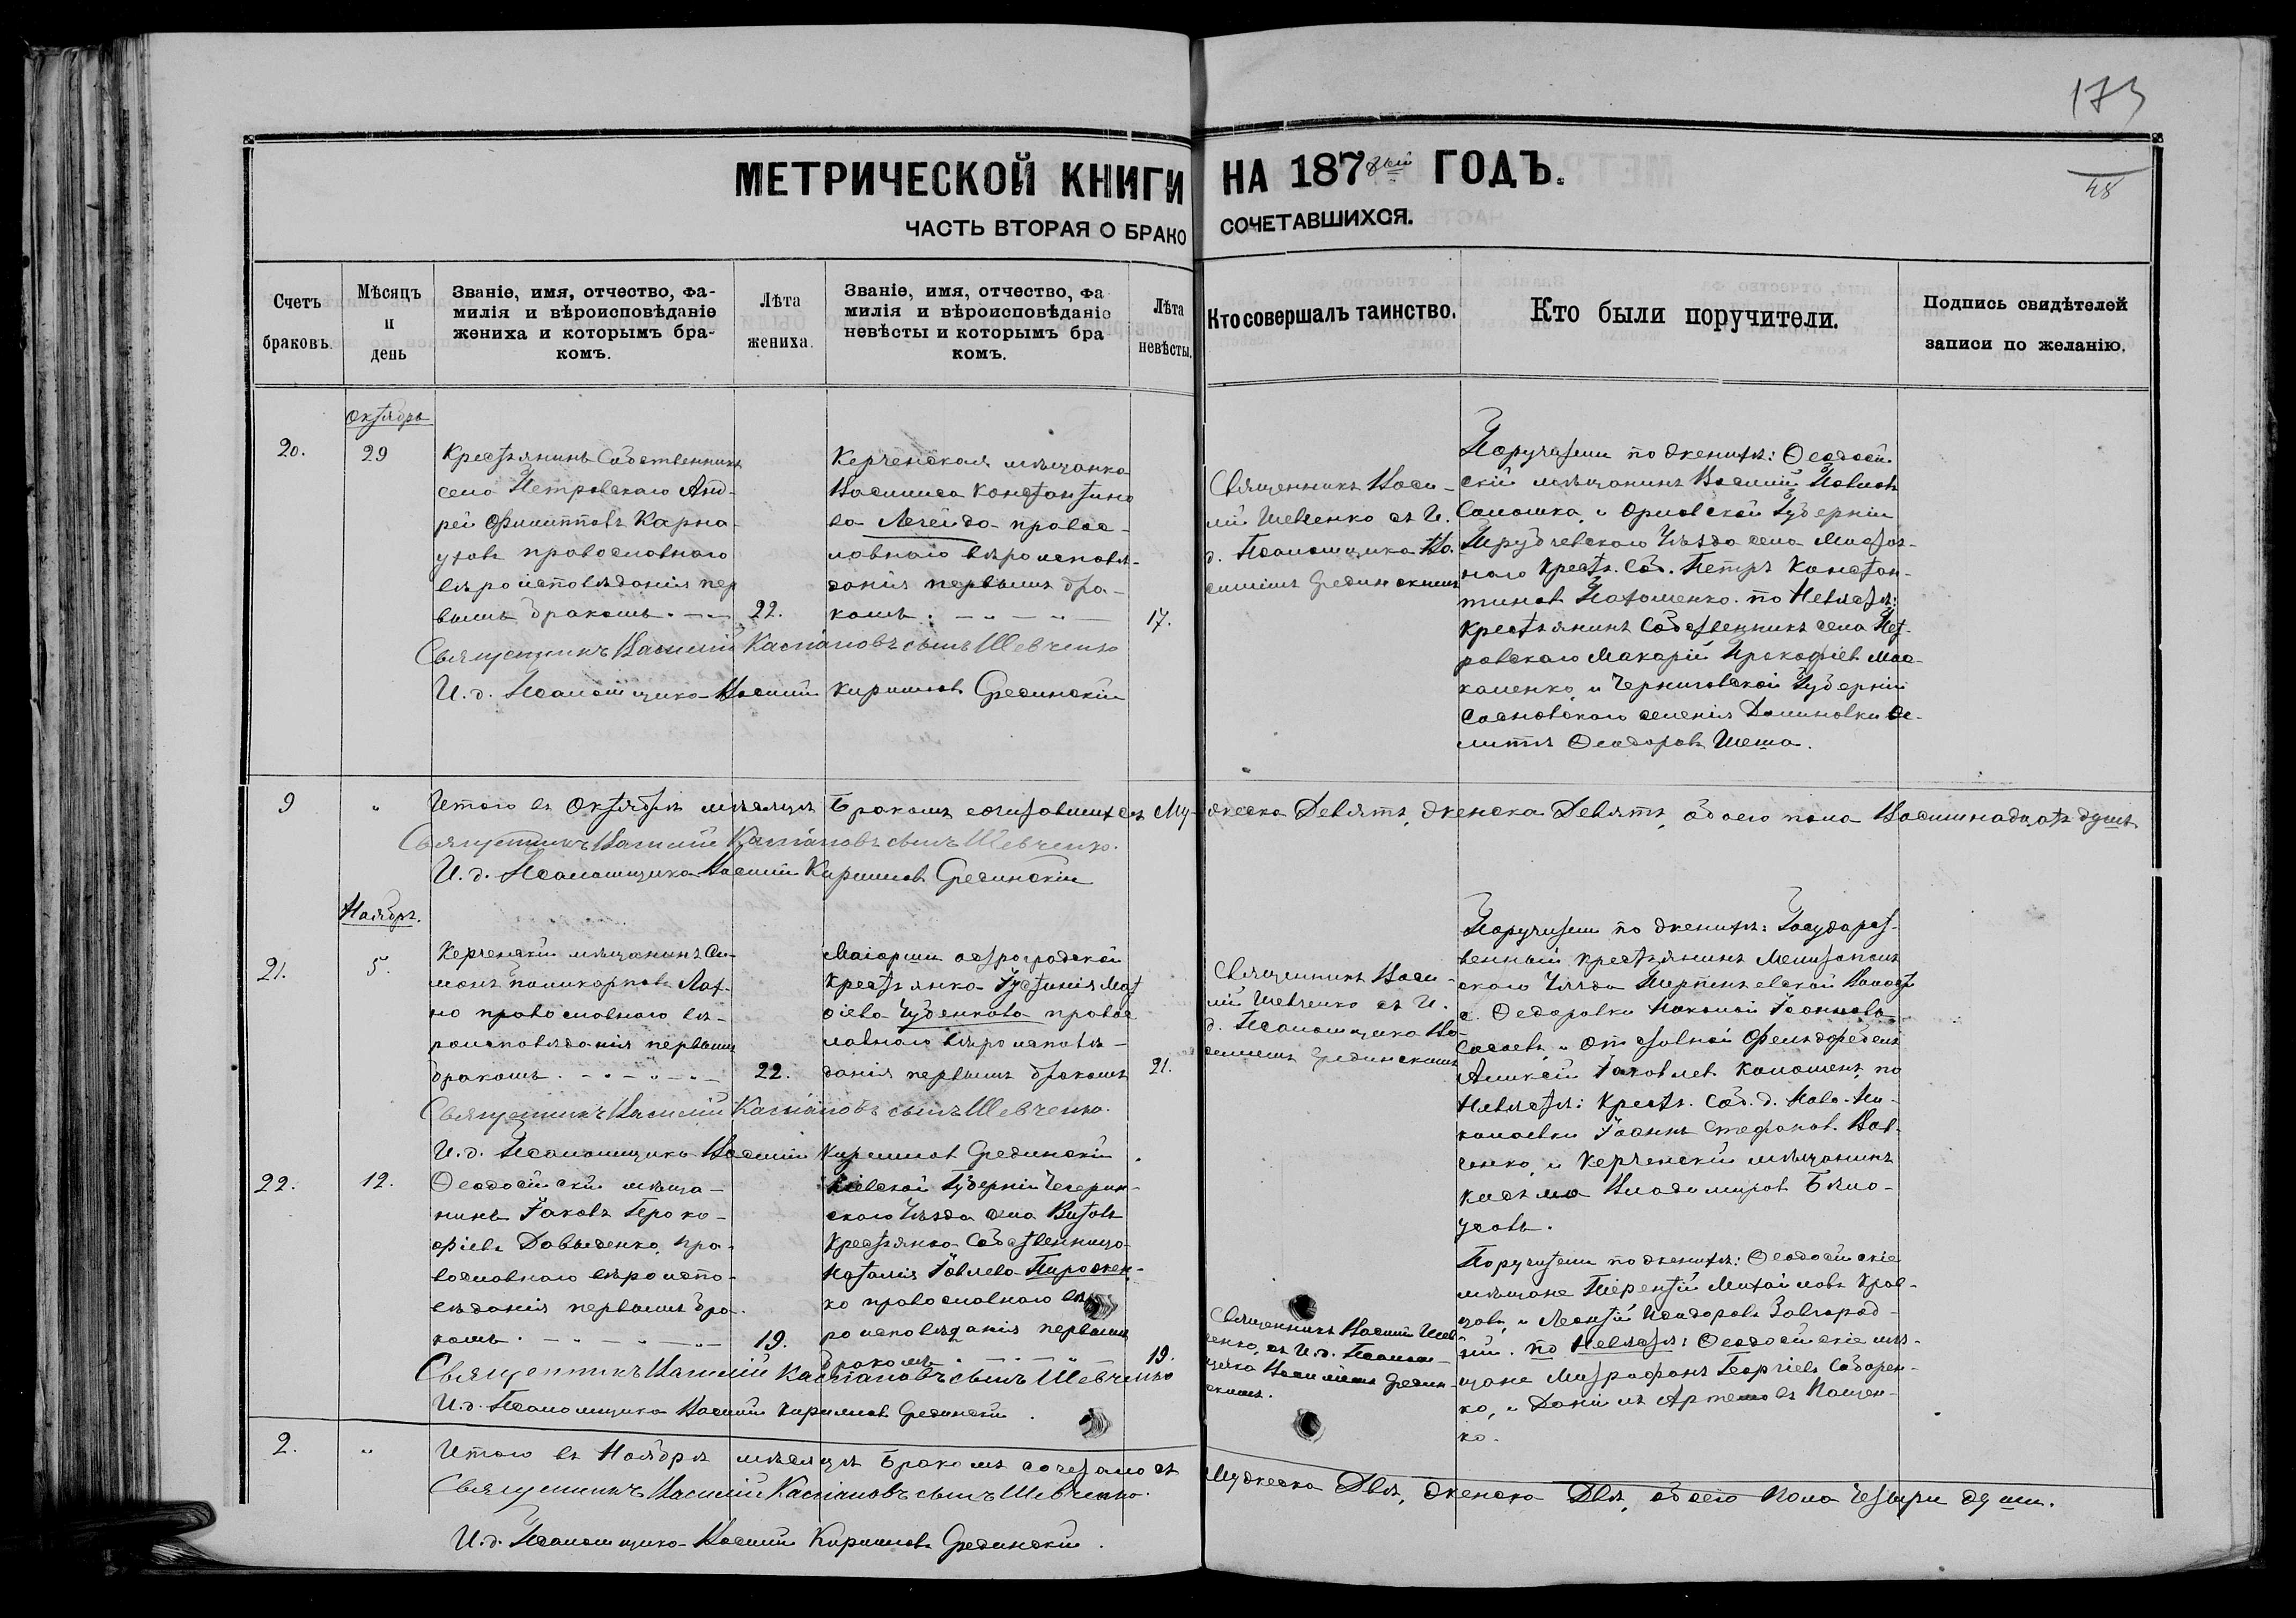 173
48
МЕТРИЧЕСКОЙ КНИГИ НА 187 ГОДЪ.
ЧАСТЬ ВТОРАЯ О БРАКО СОЧЕТАВШИХСЯ.
Счетъ
браковъ.
Мѣсяцъ
и
день
Званіе, имя, отчество, фа-
милія и вѣроисповѣданіе
жениха и которымъ бра-
комъ.
Лѣта
жениха.
Званіе, имя, отчество, фа
милія и вѣроисповѣданіе
невѣсты и которымъ бра
комъ.
Лѣта
невѣсты.
Кто совершалъ таинство.
Кто были поручители.
Подпись свидѣтелей
записи по желанію.
Октябрь
20.
29
Крестьянинъ Собственникъ
села Петровскаго Анд-
рей Филипповъ Карна-
уховъ православнаго
вѣроисповѣданія пер
вымъ бракомъ.
22.
Керченская мѣщанка
Василиса Константино
ва Легейда правос-
лавнаго вѣроисповѣ-
данія первымъ бра-
комъ.
17.
Священникъ Васи-
лій Шевченко съ И.
д. Псаломщика Ва-
силіемъ Грединскимъ
Поручители по женихѣ: Ѳеодосій-
скій мѣщанинъ Василій Павловъ
Саломка, и Орловской Губерніи
Трубчевскаго Уѣзда села
Крест. Соб. Петръ Констан-
тиновъ по Невѣстѣ:
Крестьянинъ Собственникъ села Пет-
ровскаго Макарій Прокофіевъ Мос-
каленко, и Черниговской Губерніи
Сосновскаго селенія Долиновки
Ѳеодоровъ
Священникъ Василій Касіановъ сынъ Шевченко
И. д. Псаломщика Василій Кириловъ Грединскій
9
"
Итого въ Октябрѣ мѣсяцѣ Бракомъ сочитавшихся Му-жеска Девять, Женска Девять, обоего пола Восимнадцать душъ.
Священникъ Василій Касіановъ сынъ Шевченко.
И. д. Псаломщика Василій Кириловъ Грединскій
Ноябрь.
21.
5.
Керченскій мѣщанинъ Си-
монъ Поликарповъ Лах-
но православнаго вѣ-
роисповѣданія первымъ
бракомъ.
22.
Крестьянка Іустинія Мат
ѳіева Чубенкова правос
лавнаго вѣроисповѣ-
данія первымъ бракомъ
21.
Священникъ Васи-
лій Шевченко съ И.
д. Псаломщика Ва-
силіемъ Грединскимъ
Поручители по женихѣ: Государст-
венный крестьянинъ Мелитополь
скаго Уѣзда Волости
с. Ѳедоровки Іоанновъ
и отставной Фельдфебель
Іаковлевъ по
Невѣстѣ: Крест. Соб. д. Ново-Ни-
колаевки Іоаннъ Стефановъ Вов-
ченко, и Керченскій мѣщанинъ
Касьма Владимировъ Бѣло-
усовъ.
Священникъ Василій Касіановъ сынъ Шевченко.
И. д. Псаломщика Василій Кириловъ Грединскій
22.
12.
Ѳеодосійскій мѣща-
нинъ Іаковъ Проко-
фіевъ Давыденко, пра-
вославнаго вѣроиспо-
вѣданія первымъ бра-
комъ.
19.
Кіевской Губерніи Чегрин-
скаго Уѣзда села
Крестьянка Собственница
Наталія Іовлева Пирожен-
ко православнаго вѣ
роисповѣданія первымъ
бракомъ
19.
Священникъ Василій Шев-
ченко, съ И. д. Псалом-
щика Василіемъ Гредин-
скимъ.
Поручители по женихѣ: Ѳеодосійскіе
мѣщане Терентій Михайловъ Крав-
цовъ, и Леонтій Исидоровъ Завгород-
ній. по Невѣстѣ: Ѳеодосійскіе мѣ-
щане Митрофанъ Георгіевъ Сидорен-
ко, и Даніилъ Артемовъ Кащен-
ко.
Священникъ Василій Касіановъ сынъ Шевченко
И. д. Псаломщика Василій Кириловъ Грединскій.
2.
"
Итого въ Ноябрѣ мѣсяцѣ Бракомъ сочетаюся Мужеска Двѣ, женска Двѣ, обоего пола Четыри души.
Священникъ Василій Касіановъ сынъ Шевченко.
И. д. Псаломщика Василій Кириловъ Грединскій.